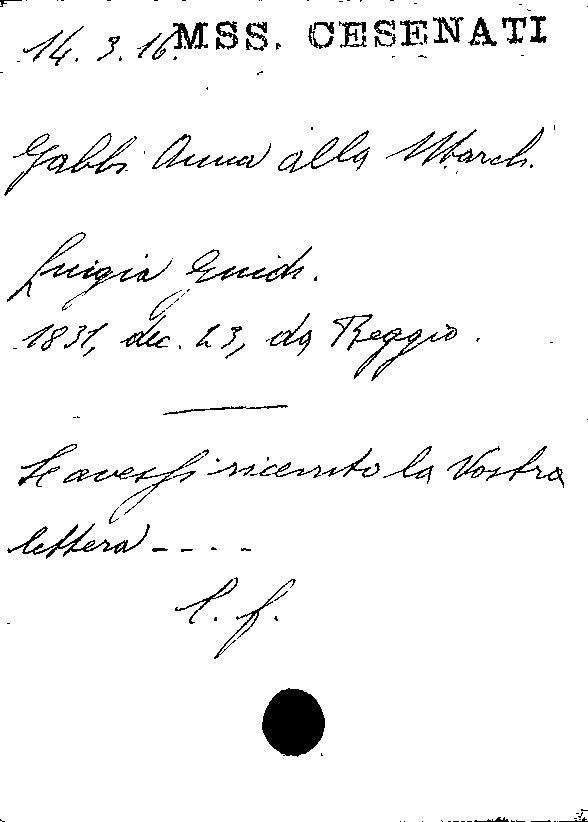 14. 3. 16. MSS. CESENATI
Gabbi Anna alla March.
Luigia Guidi.
1831, dec. 23, da Reggio.
Se avessi ricevuto la Vostra
lettera - - - -
l. f.